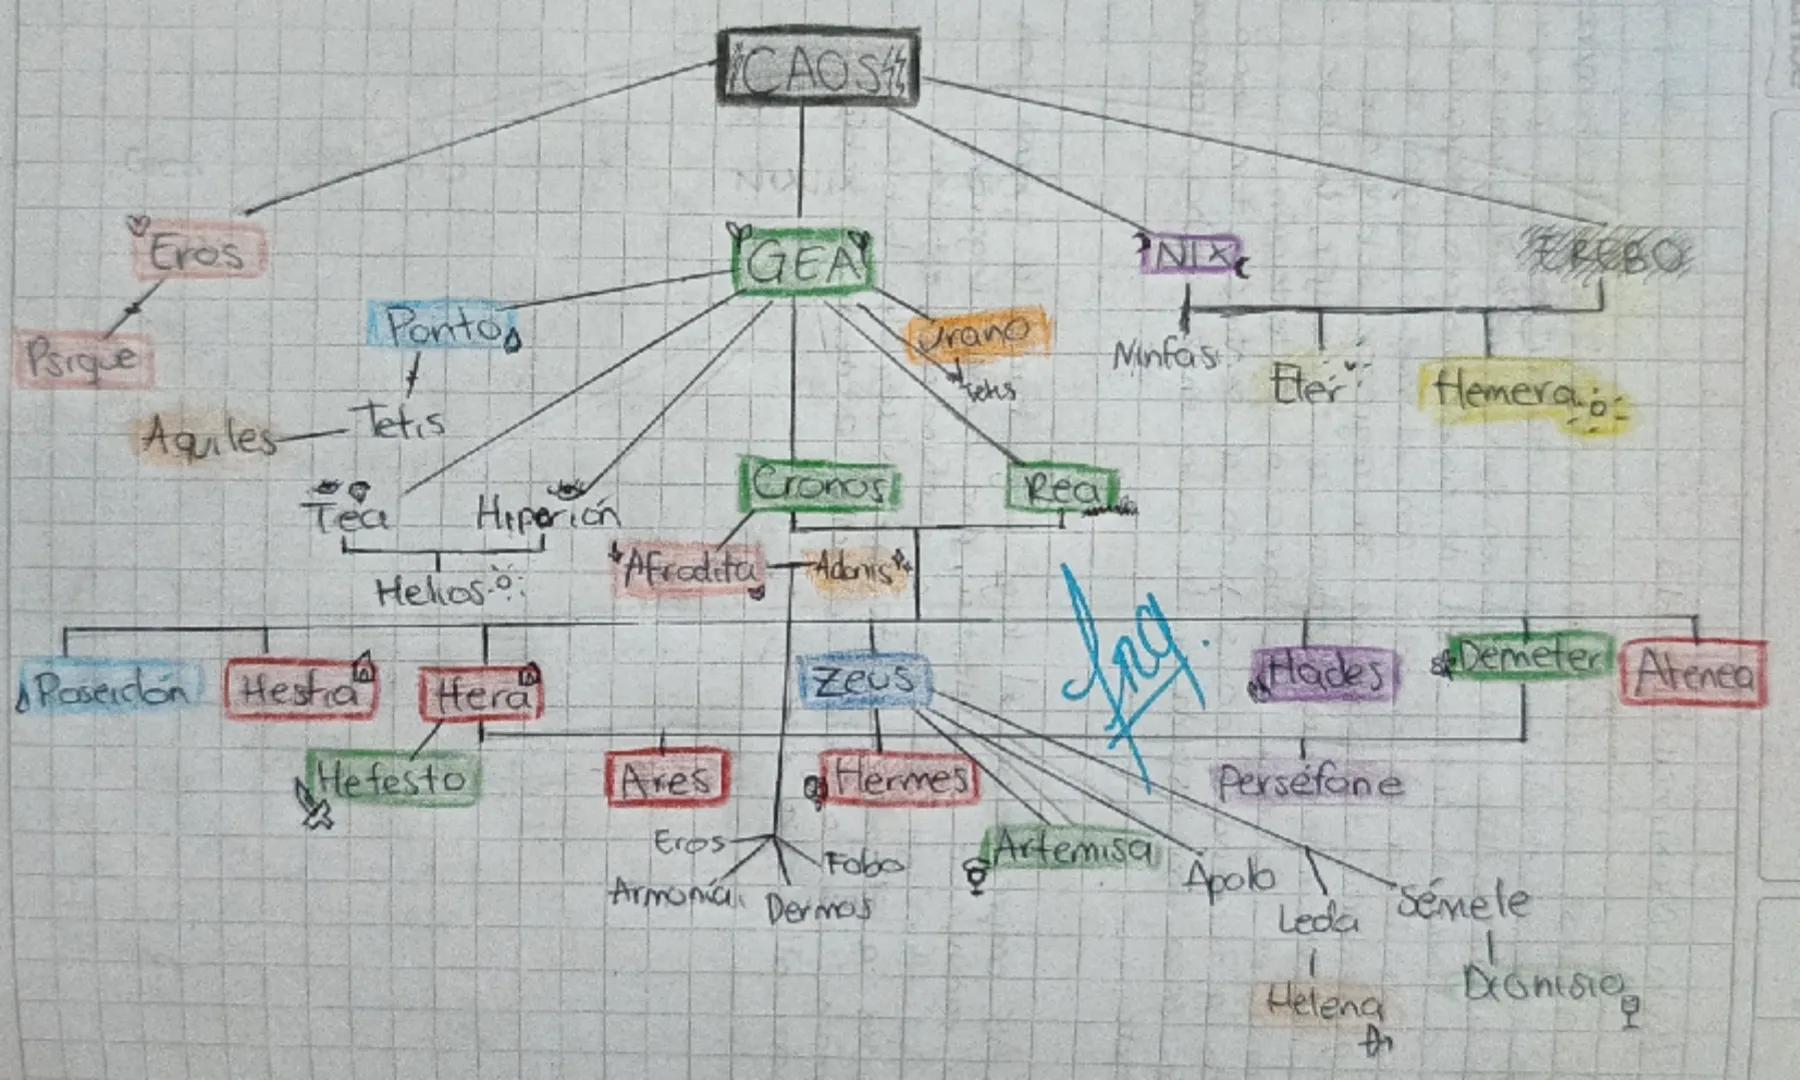 CAOS
Eros
GEA
NIX
EREBO
Psique
Ponto
Urano
Ninfas
Eter
Hemera
Tetis
Aquiles
Tetis
Tea
Hiperión
Cronos
Rea
Helios
Afrodita
Adonis
Poseidón
Hestia
Hera
Zeus
Hades
Demeter
Atenea
Hefesto
Ares
Hermes
Perséfone
Eros
Fobo
Armonía
Deimos
Artemisa
Apolo
Leda
Sémele
Helena
Dionisio